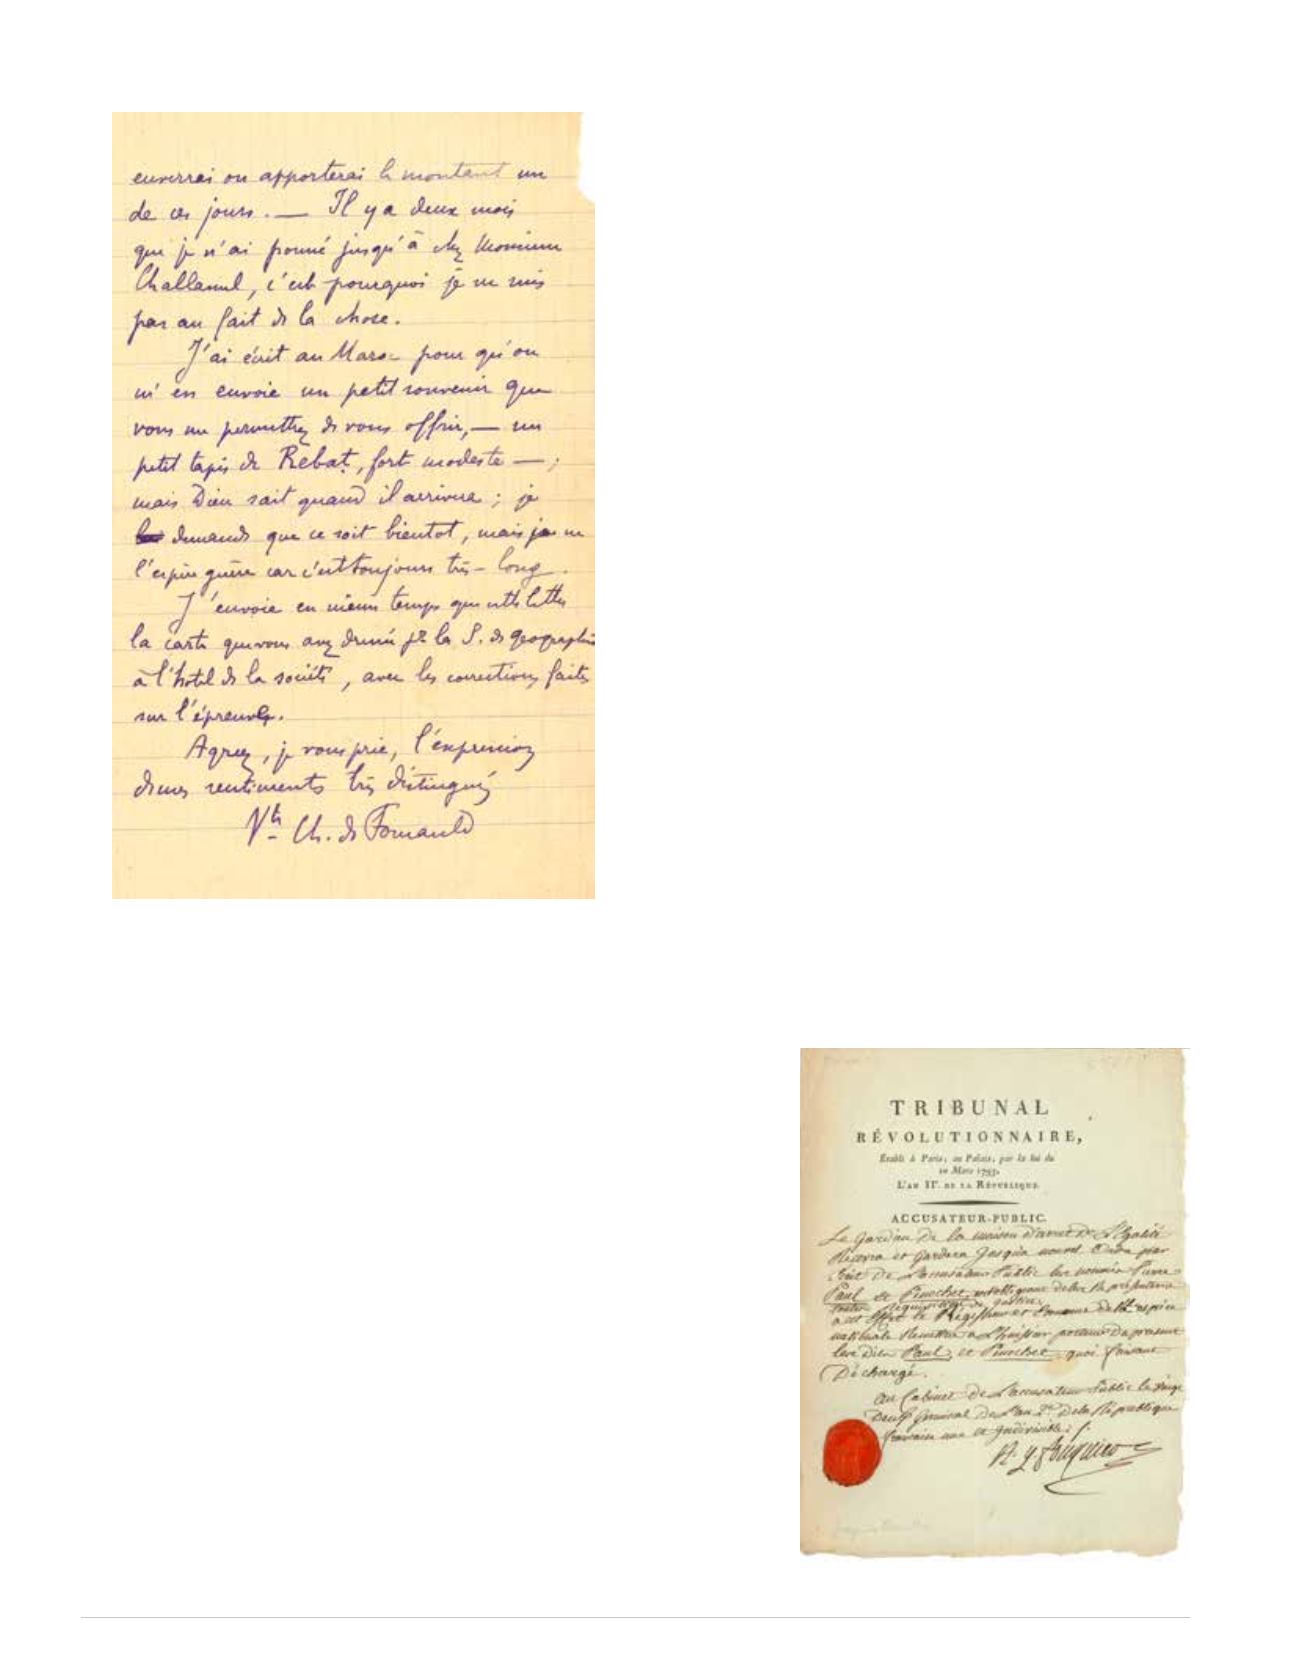 enverrai ou apporterai le montant un
de ces jours. — Il y a deux mois
que je n'ai poussé jusqu'à chez Monsieur
Challamel, c'est pourquoi je ne suis
pas au fait de la chose.
J'ai écrit au Maroc pour qu'on
m'en envoie un petit souvenir que
vous me permettrez de vous offrir, — un
petit tapis de Rebat, fort modeste — ;
mais Dieu sait quand il arrivera ; je
demande que ce soit bientot, mais je ne
l'espère guère car c'est toujours très-long.
J'envoie en même temps que cette lettre
la carte que vous avez dessiné pr la S. de géographie
à l'hotel de la société, avec les corrections faites
sur l'épreuve.
Agréez, je vous prie, l'expression
de mes sentiments très distingués
Vte Ch. de Foucauld
TRIBUNAL
RÉVOLUTIONNAIRE,
Établi à Paris, au Palais, par la loi du
10 Mars 1793,
L'AN IIe. DE LA RÉPUBLIQUE.
ACCUSATEUR-PUBLIC.
Le Gardien de la maison d'arret de L'Egalité
Recevra et Gardera Jusqua nouvel Ordre par
Ecrit de L'accusateur Public les nommés Pierre
Paul et Pinochet
a cet Effet le
nationale Remettra a L'huissier porteur Du présent
les Dits Paul, et Pinochet quoi faisant
Déchargé.
au Cabinet de L'accusateur Public le vingt
Deux Germinal De L'an 2e. De la République
francaise une et Indivisible.
A. Q. Fouquier